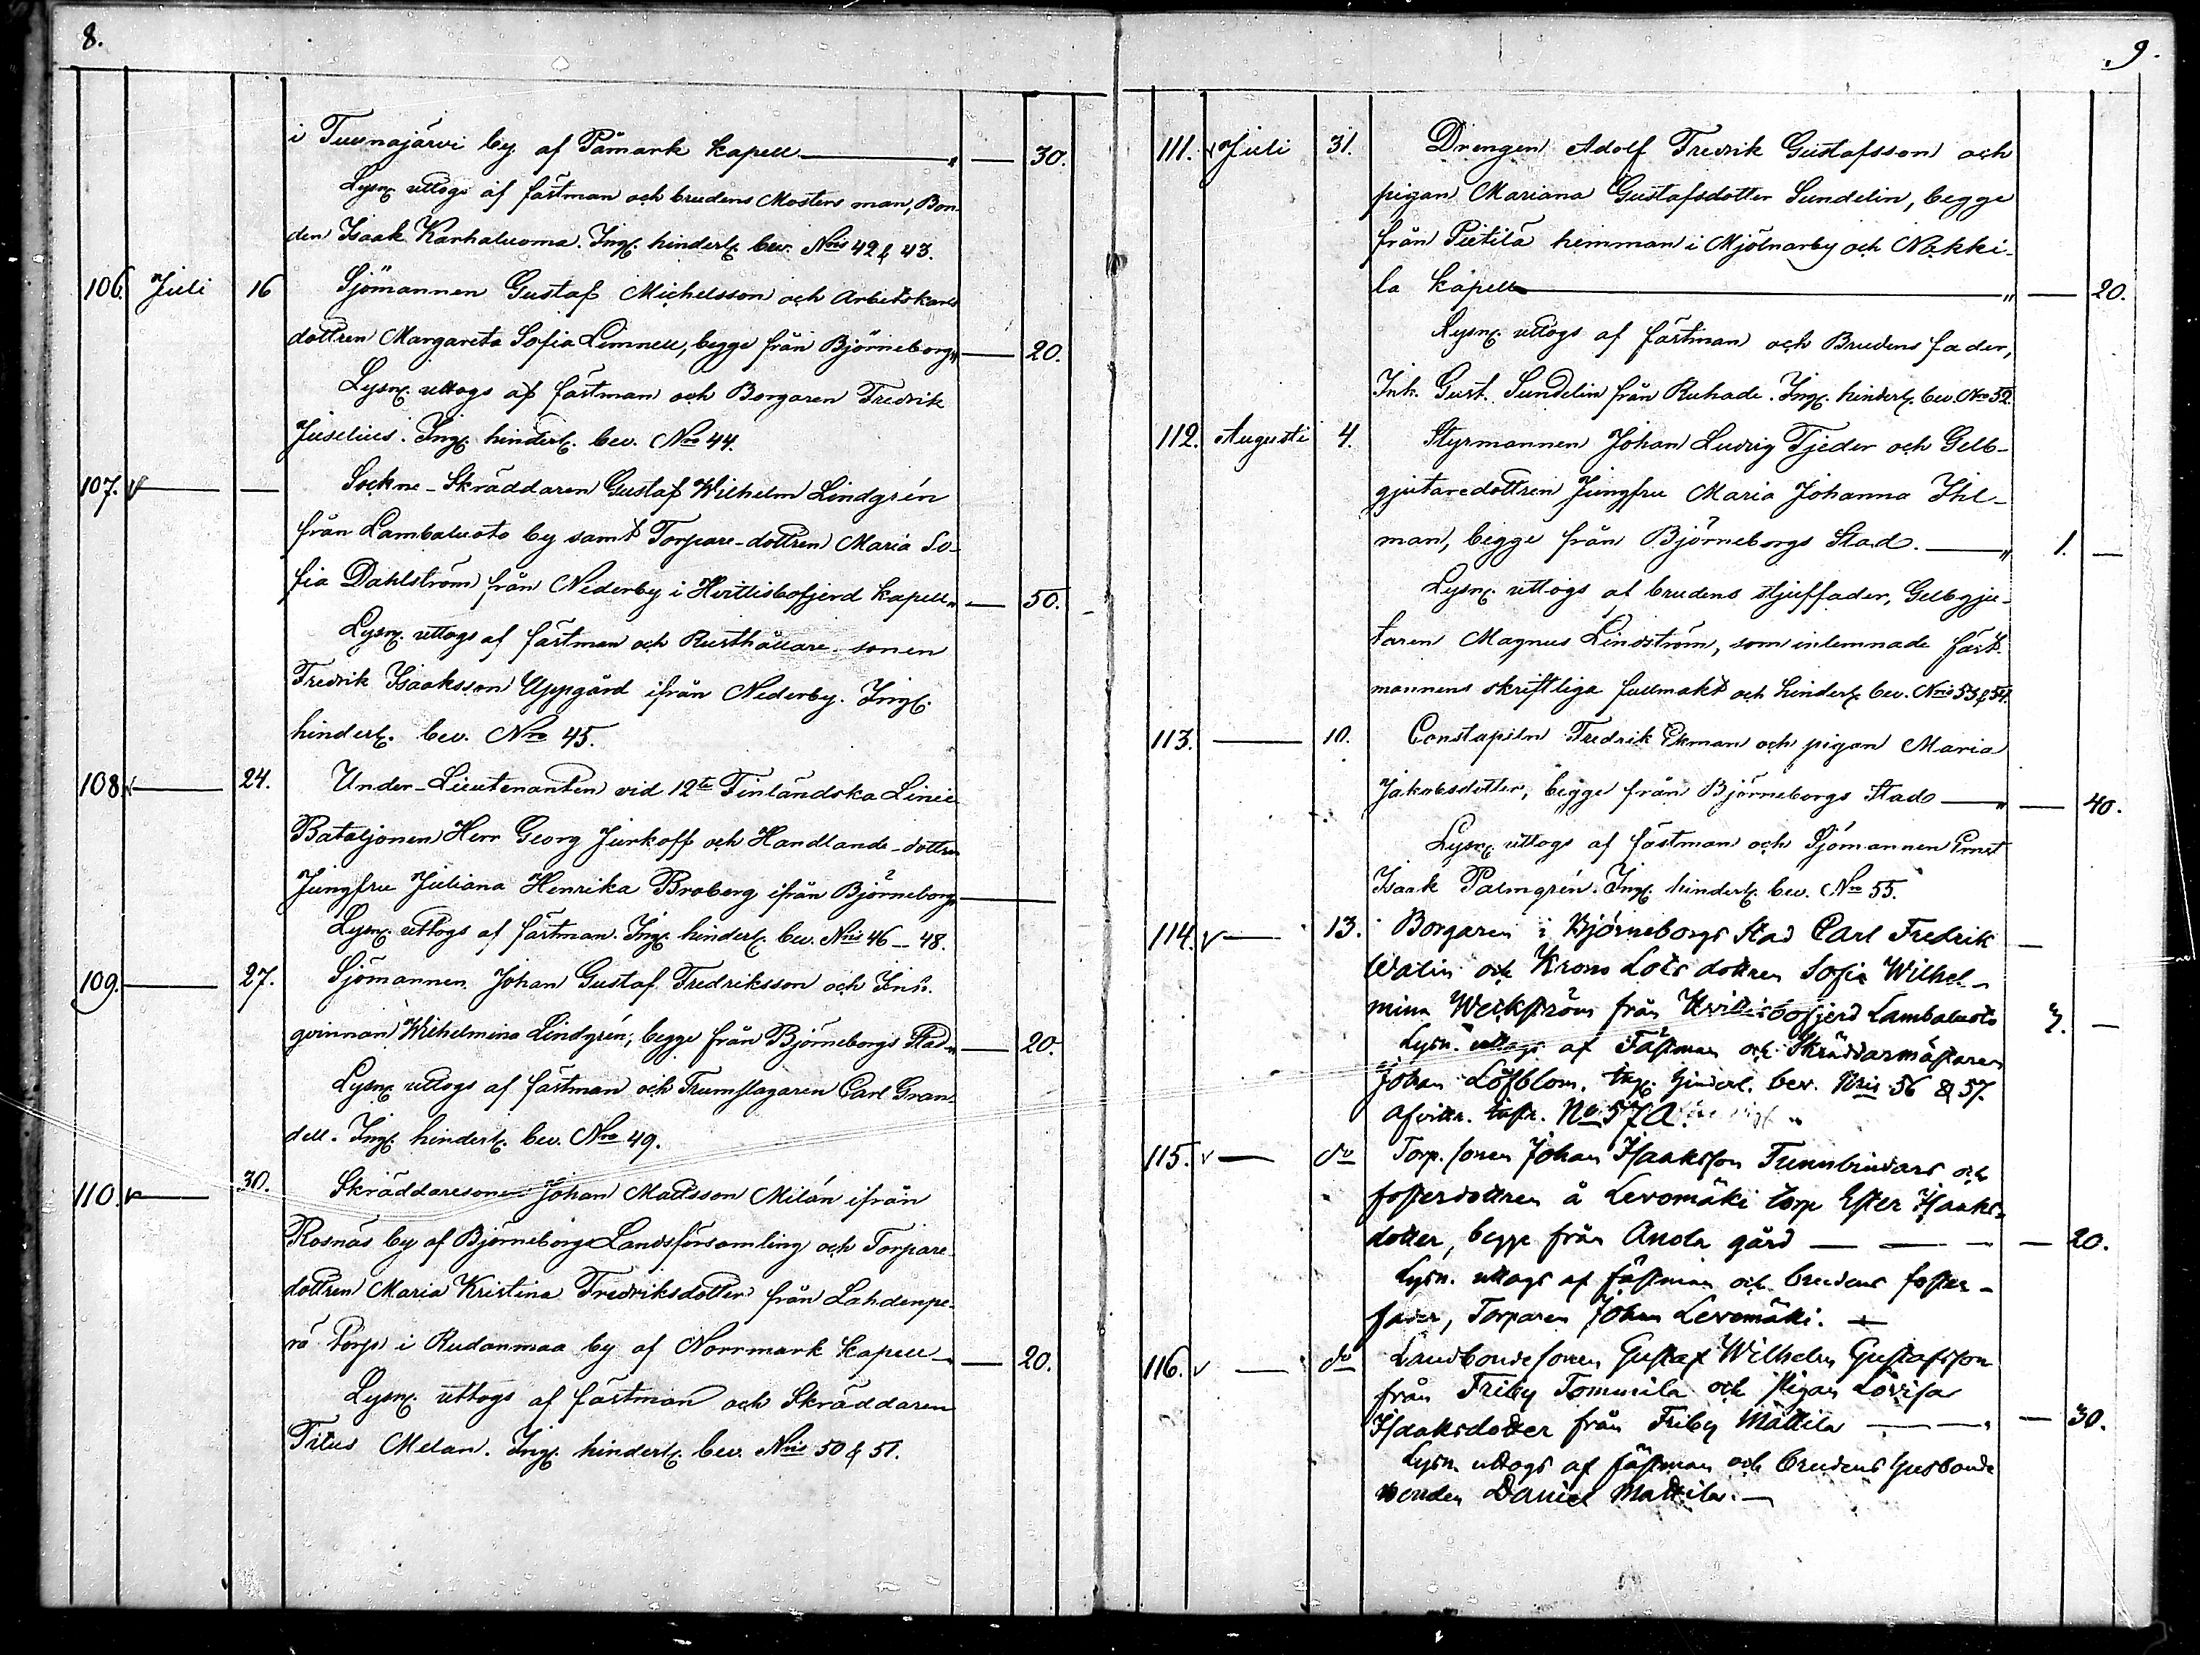 8.
i Tuurujärvi by af Påmark kapell — „ — 30.
Lysn. uttogs af fästman och brudens Mosters man, Bon-
den Isaak Karhaluoma. Ing. hinderl. bev. Nris 42 & 43.
106. Juli 16 Sjömannen Gustaf Michelsson och Arbetskarls
dottren Margareta Sofia Limnell, begge från Björneborg „ — 20.
Lysn. uttogs af fästman och Borgaren Fredrik
Juselius. Ing. hinderl. bev. Nro 44.
107. v — — Sockne-Skräddaren Gustaf Wilhelm Lindgrén
från Lambaluoto by samt Torpare-dottren Maria So-
fia Dahlström från Nederby i Hvittisbofjerd kapell „ — 50.
Lysn. uttogs af fästman och Rusthållare-sonen
Fredrik Isaaksson Uppgård ifrån Nederby. Ing.
hinderl. bev. Nro 45.
108. v — 24. Under-Lieutenanten vid 12te Finländska Linie
Bataljonen Herr Georg Jurkoff och Handlande-dottren
Jungfru Juliana Henrika Broberg ifrån Björneborg „ —
Lysn. uttogs af fästman. Ing. hinderl. bev. Nris 46 – 48.
109. — 27. Sjömannen Johan Gustaf Fredriksson och Inh.
qvinnan Wilhelmina Lindgrén, begge från Björneborgs Stad „ — 20.
Lysn. uttogs af fästman och Trumslagaren Carl Gran-
dell. Ing. hinderl. bev. Nro 49.
110. v — 30. Skräddaresonen Johan Mattsson Milán ifrån
Rosnäs by af Björneborgs Landsförsamling och Torpare-
dottren Maria Kristina Fredriksdotter från Lahdenpe-
rä Torp i Rudanmaa by af Norrmark kapell „ — 20.
Lysn. uttogs af fästman och Skräddaren
Titus Melan. Ing. hinderl. bev. Nris 50 & 51.
9.
111. v Juli 31. Drengen Adolf Fredrik Gustafsson och
pigan Mariana Gustafsdotter Sundelin, begge
från Pietilä hemman i Mjölnarby och Nakki-
la kapell — „ — 20.
Lysn. uttogs af fästman och Brudens fader,
Inh. Gust. Sundelin från Ruhade. Ing. hinderl. bev. Nro 52.
112. Augusti 4. Styrmannen Johan Ludvig Tjeder och Gelb-
gjutaredottren Jungfru Maria Johanna Ihl-
man, begge från Björneborgs Stad. — „ 1. —
Lysn. uttogs af brudens stjuffader, Gelbgju-
taren Magnus Lindström, som inlemnade fäst-
mannens skriftliga fullmakt och hinderl. bev. Nris 53 & 54.
113. — 10. Constapeln Fredrik Ekman och pigan Maria
Jakobsdotter, begge från Björneborgs Stad — „ — 40.
Lysn. uttogs af fästman och Sjömannen Ernst
Isaak Palmgrén. Ing. hinderl. bev. Nro 55.
114. v — 13. Borgaren i Björneborgs Stad Carl Fredrik —
Walin och Krono Lots dottren Sofia Wilhel-
mina Weckström från Hvittisbofjerd Lambaluoto 3. —
Lysn. uttogs af Fästman och Skräddarmästaren
Johan Löfblom. Ing. hinderl. bev. Nris 56 & 57.
Afvittr. instr. No 57 A.
115. v — do Torp. sonen Johan Isaaksson Tunnbindars och
fosterdottren å Levomäki torp Ester Isaaks-
dotter, begge från Anola gård — — — — 20.
Lysn. uttogs af fästman och brudens foster-
fader, Torparen Johan Levomäki. —
116. v — do Landbondesonen Gustaf Wilhelm Gustafsson
från Friby Tommila och Pigan Lovisa
Isaaksdotter från Friby Mattila — — „ — 30.
Lysn. uttogs af fästman och brudens husbonde
bonden Daniel Mattila. —